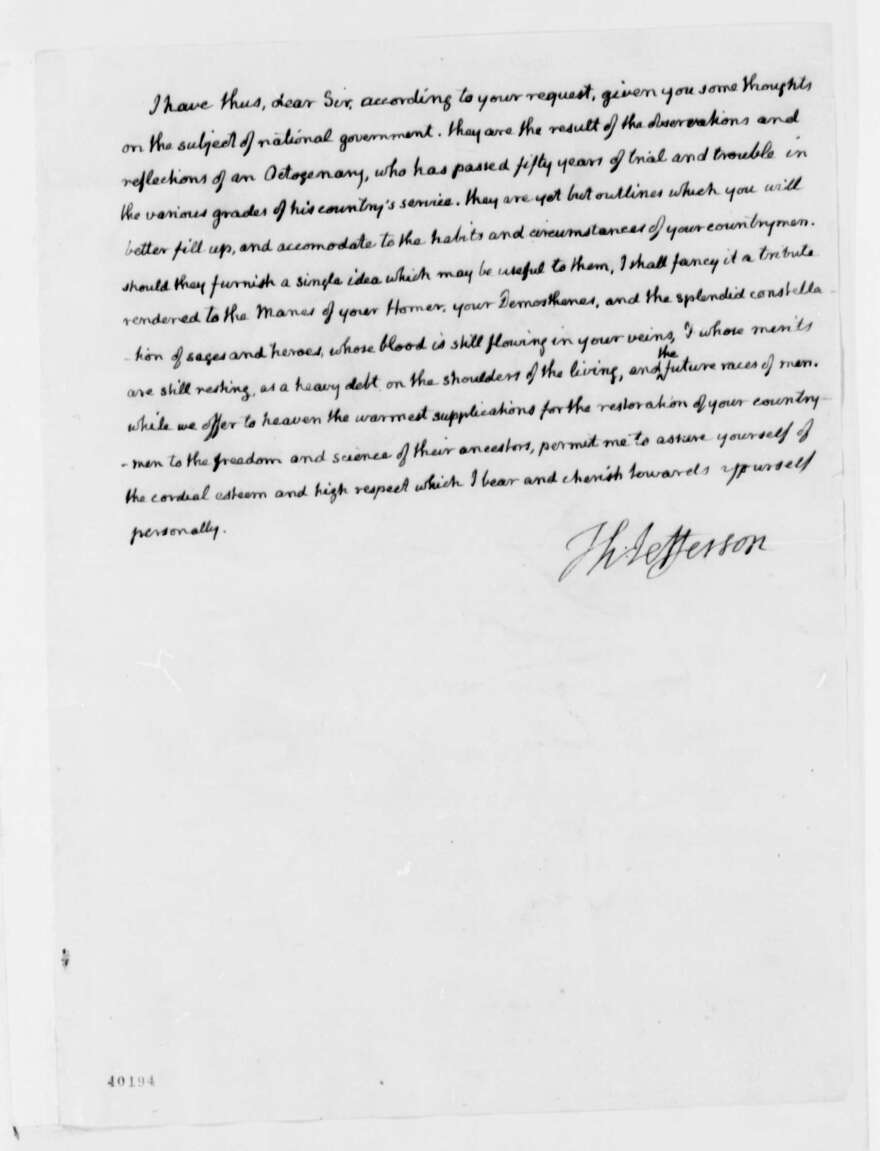 I have thus, dear Sir, according to your request, given you some thoughts
on the subject of national government. they are the result of the observations and
reflections of an Octogenary, who has passed fifty years of trial and trouble in
the various grades of his country's service. they are yet but outlines which you will
better fill up, and accomodate to the habits and circumstances of your countrymen.
should they furnish a single idea which may be useful to them, I shall fancy it a tribute
rendered to the Manes of your Homer, your Demosthenes, and the splendid constella-
-tion of sages and heroes, whose blood is still flowing in your veins, & whose merits
are still resting, as a heavy debt, on the shoulders of the living, and the future races of men.
while we offer to heaven the warmest supplications for the restoration of your country-
-men to the freedom and science of their ancestors, permit me to assure yourself of
the cordial esteem and high respect which I bear and cherish towards yourself
personally.
Th: Jefferson
40194